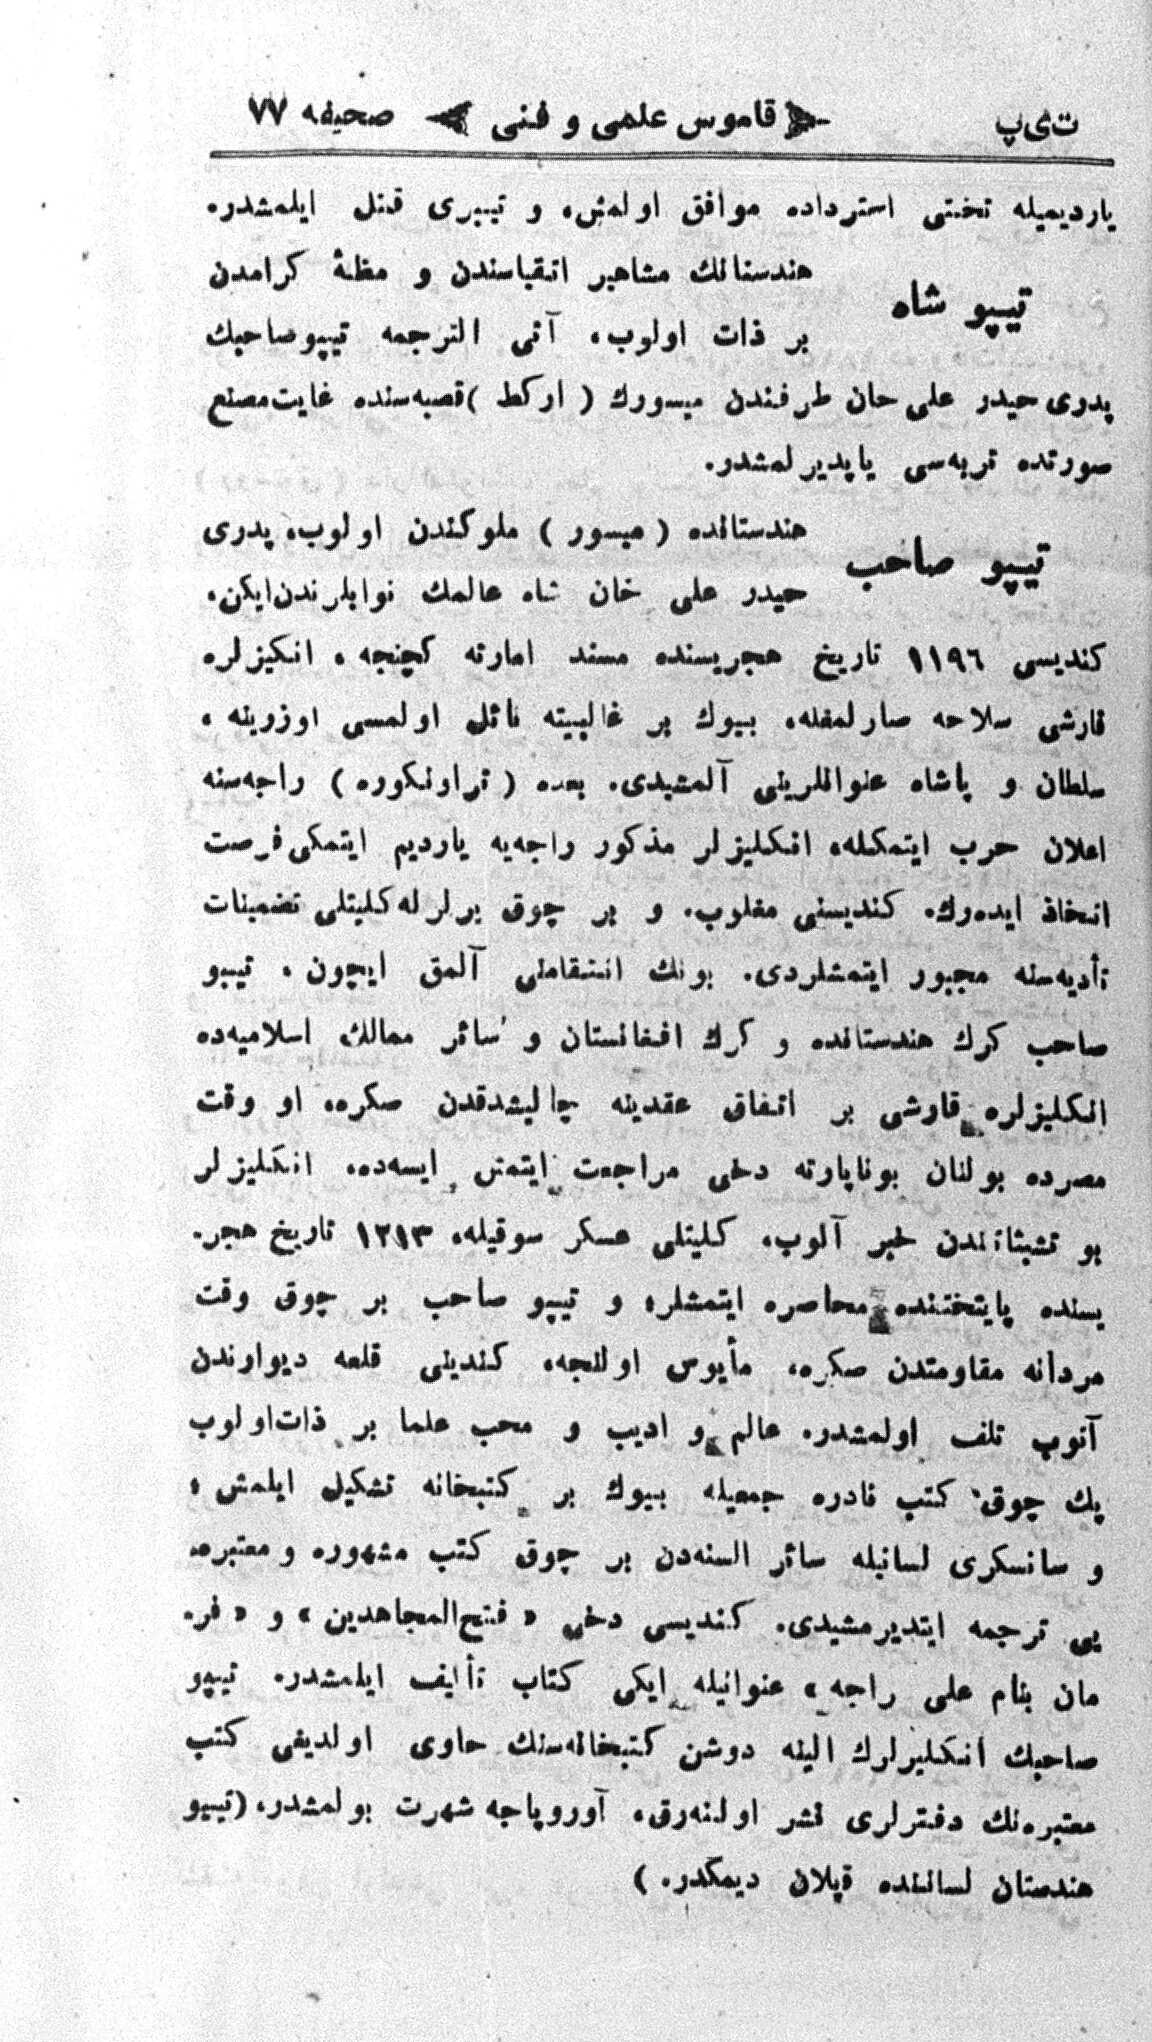 ت‌ی‌پ قاموس علمی و فنی صحیفه ٧٧
یاردیمیله تختنی استرداده موافق اولمش، و تیپری قتل ایلمشدر.
تیپو شاه
هندستانك مشاهیر اتقیاسندن و مظنۀ کرامدن
بر ذات اولوب، آتی الترجمه تیپوصاحبك
پدری حیدر علی حان طرفندن میسورك (ارکط) قصبه‌سنده غایت مصنع
صورتده تربه‌سی یاپدیرلمشدر.
تیپو صاحب
هندستانده (میسور) ملوکندن اولوب، پدری
حیدر علی خان شاه عالمك نوابلرندن ایکن،
کندیسی ١١٩٦ تاریخ هجریسنده مسند امارته کچنجه، انکیزلره
قارشی سلاحه صارلمغله، بیوك بر غالبیته نائل اولمسی اوزرینه،
سلطان و پاشاه عنوانلرینی آلمشیدی. بعده (تراونکوره) راجه‌سنه
اعلان حرب ایتمکله، انکلیزلر مذکور راجه‌یه یاردیم ایتمکی فرصت
اتخاذ ایده‌رك، کندیسنی مغلوب، و بر چوق یرلرله کلیتلی تضمینات
تأدیه‌سنه مجبور ایتمشلردی. بونك انتقامنی آلمق ایچون، تیپو
صاحب کرك هندستانده و کرك افغانستان و سائر ممالك اسلامیه‌ده
انکلیزلره قارشی بر اتفاق عقدینه چالیشدقدن صکره، او وقت
مصرده بولنان بوناپارته دخی مراجعت ایتمش ایسه‌ده، انکلیزلر
بو تشبثاتندن خبر آلوب، کلیتلی عسکر سوقیله، ١٢١٣ تاریخ هجر-
یسنده پایتختنده محاصره ایتمشلر؛ و تیپو صاحب بر چوق وقت
مردانه مقاومتدن صکره، مأیوس اولنجه، کندینی قلعه دیوارندن
آتوب تلف اولمشدر. عالم و ادیب و محب علما بر ذات اولوب
پك چوق کتب نادره جمعیله بیوك بر کتبخانه تشکیل ایلمش؛
و سانسکری لسانیله سائر السنه‌دن بر چوق کتب مشهوره و معتبره‌
یی ترجمه ایتدیرمشیدی. کندیسی دخی « فتح‌المجاهدین » و « فر-
مان بنام علی راجه » عنوانیله ایکی کتاب تألیف ایلمشدر. تیپو
صاحبك انکلیزلرك الینه دوشن کتبخانه‌سنك حاوی اولدیغی کتب
معتبره‌نك دفترلری نشر اولنه‌رق، آوروپاجه شهرت بولمشدر. (تیپو
هندستان لساننده قپلان دیمکدر.)